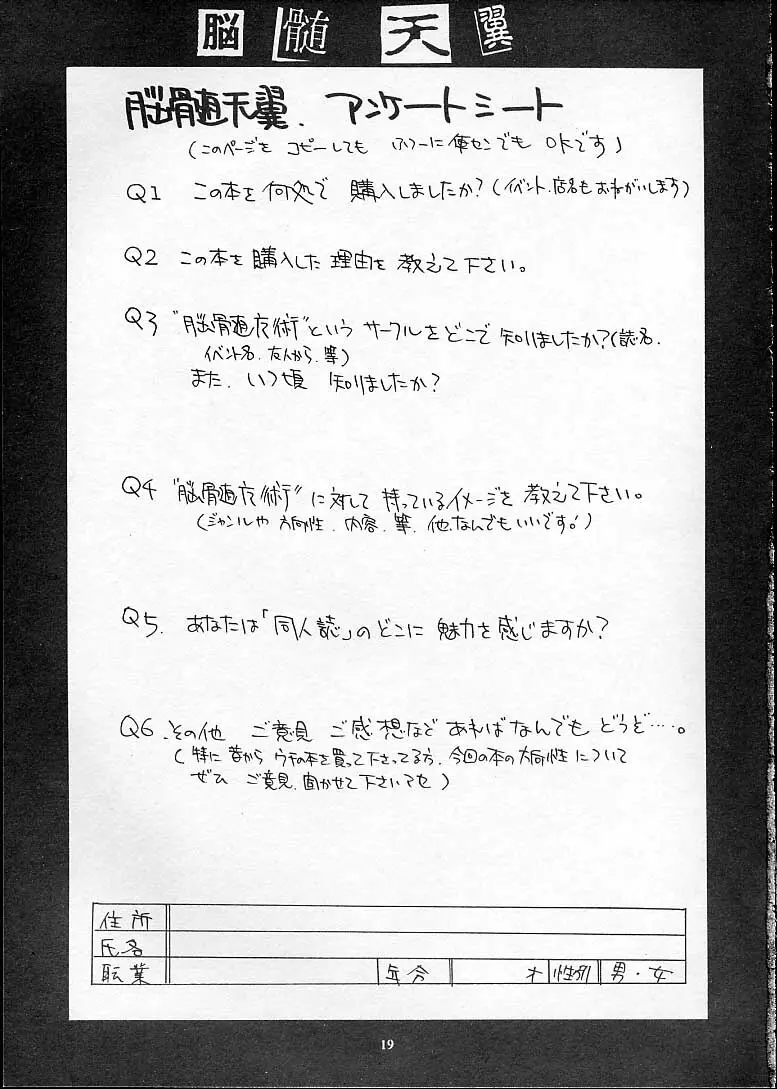 脳髄天翼
脳髄天翼. アンケートシート
(このページを コピーしても ふつーに便センでも OKです)
Q1 この本を何処で 購入しましたか?(イベント.店名もおねがいします)
Q2 この本を購入した理由を教えて下さい。
Q3 "脳髄魔術"という サークルをどこで 知りましたか?(誌名.
イベント名.友人から.等)
また. いつ頃 知りましたか?
Q4 "脳髄魔術"に対して 持っているイメージを教えて下さい。
(ジャンルや 方向性. 内容. 等. 他.なんでもいいです!)
Q5. あなたは「同人誌」のどこに 魅力を感じますか?
Q6.その他 ご意見 ご感想など あればなんでも どうぞ…。
(特に 昔から ウチの本を買って下さってる方. 今回の本の方向性について
ぜひ ご意見.聞かせて下さいマセ)
住所
氏名
職業 年令 才 性別 男・女
19